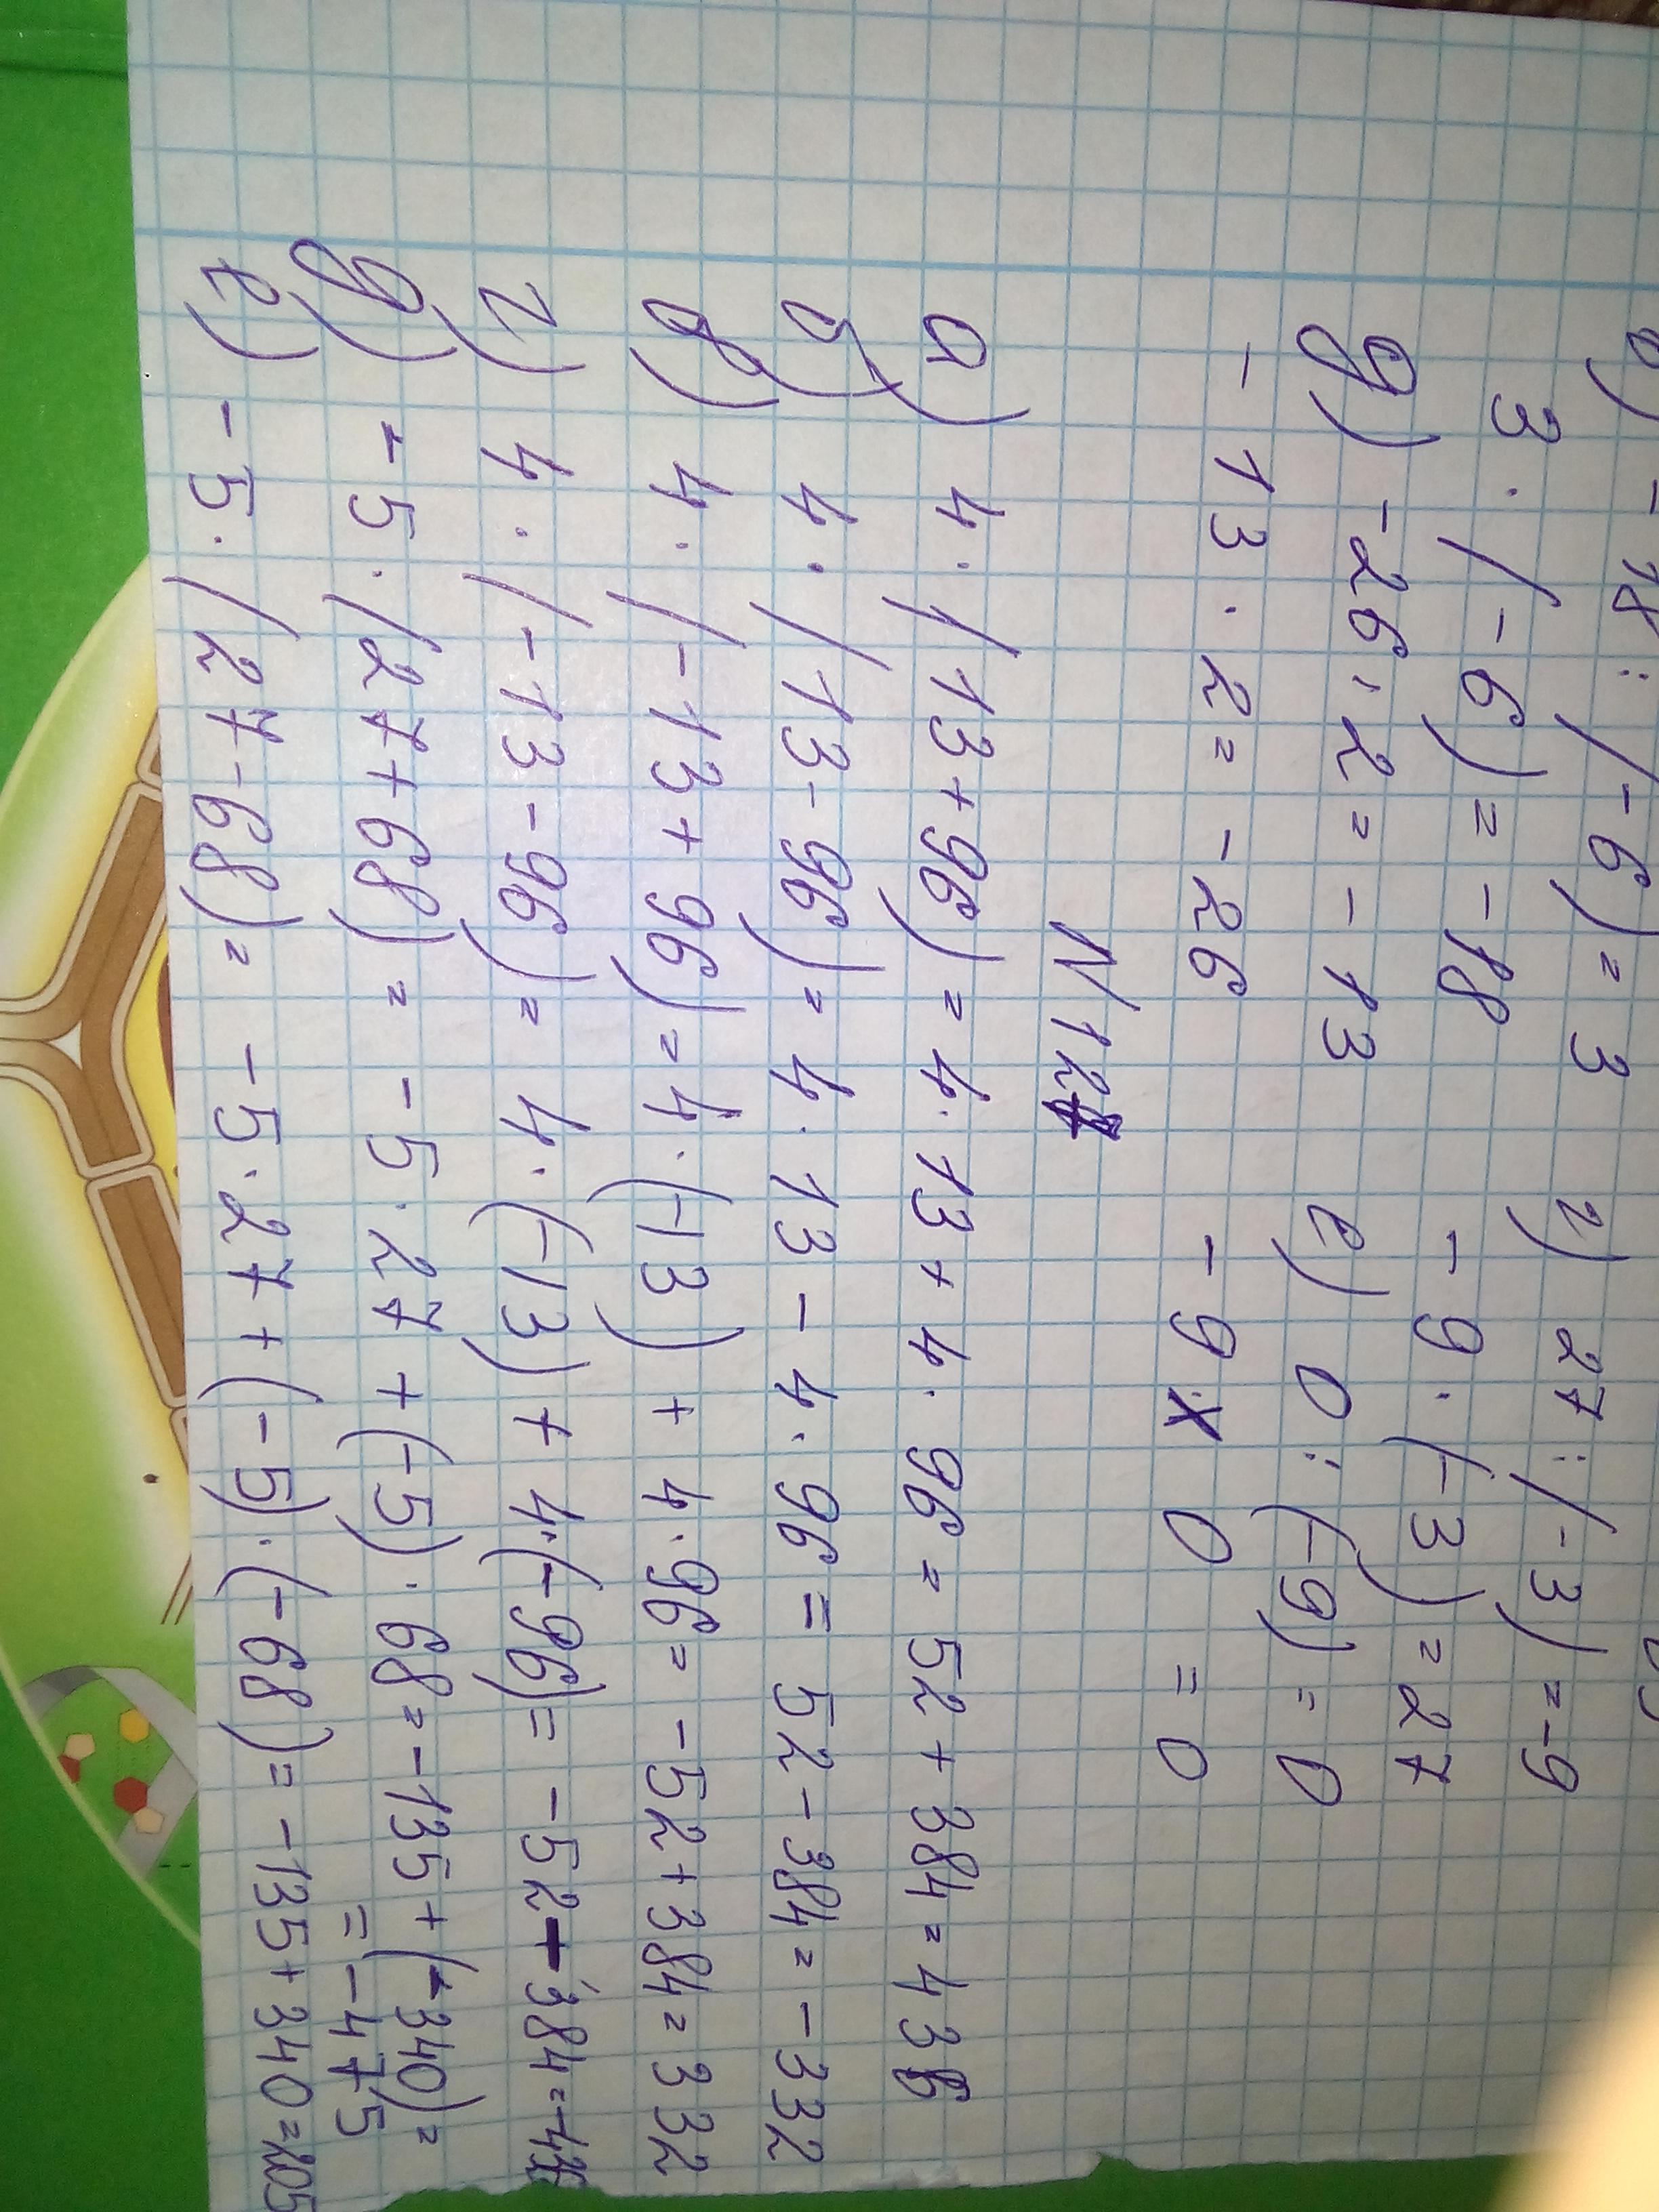 в) -18 : (-6) = 3 г) 27 : (-3) = -9
3 · (-6) = -18 -9 · (-3) = 27
д) -26 : 2 = -13 е) 0 : (-9) = 0
-13 · 2 = -26 -9 x 0 = 0
N 127
а) 4 · (13 + 96) = 4 · 13 + 4 · 96 = 52 + 384 = 436
б) 4 · (13 - 96) = 4 · 13 - 4 · 96 = 52 - 384 = -332
в) 4 · (-13 + 96) = 4 · (-13) + 4 · 96 = -52 + 384 = 332
г) 4 · (-13 - 96) = 4 · (-13) + 4 · (-96) = -52 - 384 =
д) -5 · (27 + 68) = -5 · 27 + (-5) · 68 = -135 + (-340) =
= -475
е) -5 · (27 - 68) = -5 · 27 + (-5) · (-68) = -135 + 340 = 205